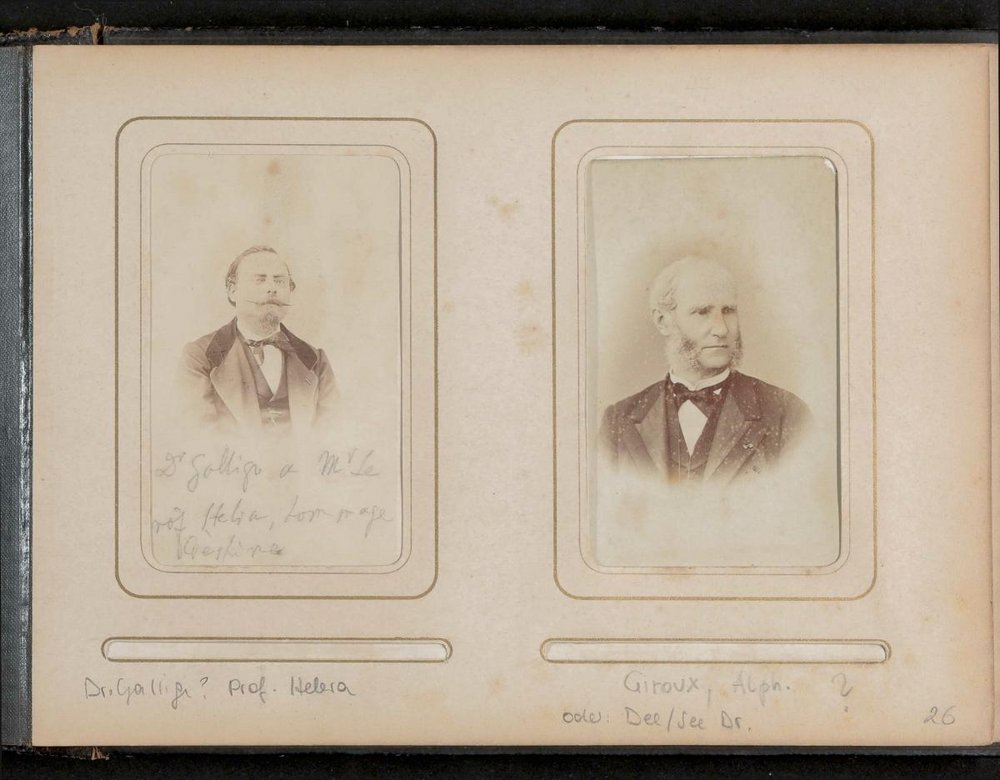 Dr Galligo a Mr Le
Hebra, hommage
Dr. Gallige? Prof. Hebra
Giroux, Alph. ?
oder: Dee/See Dr.
26